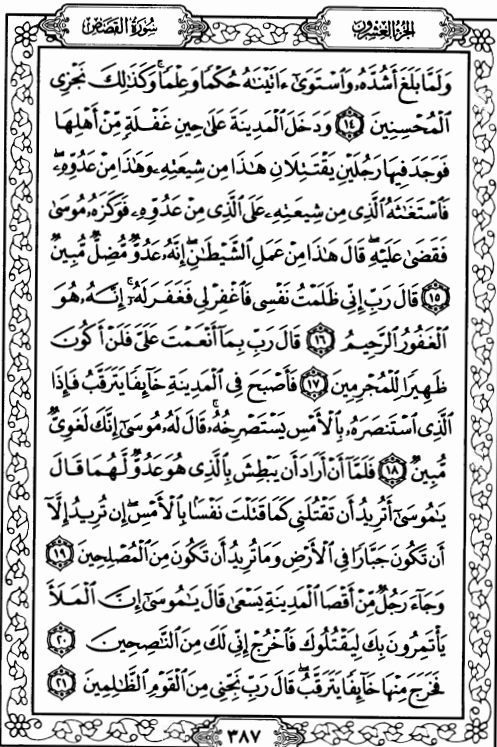 سورة القصص
الجزء العشرون
وَلَمَّا بَلَغَ أَشُدَّهُۥ وَٱسْتَوَىٰٓ ءَاتَيْنَٰهُ حُكْمًا وَعِلْمًا ۚ وَكَذَٰلِكَ نَجْزِى
ٱلْمُحْسِنِينَ ١٤ وَدَخَلَ ٱلْمَدِينَةَ عَلَىٰ حِينِ غَفْلَةٍ مِّنْ أَهْلِهَا
فَوَجَدَ فِيهَا رَجُلَيْنِ يَقْتَتِلَانِ هَٰذَا مِن شِيعَتِهِۦ وَهَٰذَا مِنْ عَدُوِّهِۦ ۖ
فَٱسْتَغَٰثَهُ ٱلَّذِى مِن شِيعَتِهِۦ عَلَى ٱلَّذِى مِنْ عَدُوِّهِۦ فَوَكَزَهُۥ مُوسَىٰ
فَقَضَىٰ عَلَيْهِ ۖ قَالَ هَٰذَا مِنْ عَمَلِ ٱلشَّيْطَٰنِ ۖ إِنَّهُۥ عَدُوٌّ مُّضِلٌّ مُّبِينٌ
١٥ قَالَ رَبِّ إِنِّى ظَلَمْتُ نَفْسِى فَٱغْفِرْ لِى فَغَفَرَ لَهُۥٓ ۚ إِنَّهُۥ هُوَ
ٱلْغَفُورُ ٱلرَّحِيمُ ١٦ قَالَ رَبِّ بِمَآ أَنْعَمْتَ عَلَىَّ فَلَنْ أَكُونَ
ظَهِيرًا لِّلْمُجْرِمِينَ ١٧ فَأَصْبَحَ فِى ٱلْمَدِينَةِ خَآئِفًا يَتَرَقَّبُ فَإِذَا
ٱلَّذِى ٱسْتَنصَرَهُۥ بِٱلْأَمْسِ يَسْتَصْرِخُهُۥ ۚ قَالَ لَهُۥ مُوسَىٰٓ إِنَّكَ لَغَوِىٌّ
مُّبِينٌ ١٨ فَلَمَّآ أَنْ أَرَادَ أَن يَبْطِشَ بِٱلَّذِى هُوَ عَدُوٌّ لَّهُمَا قَالَ
يَٰمُوسَىٰٓ أَتُرِيدُ أَن تَقْتُلَنِى كَمَا قَتَلْتَ نَفْسًۢا بِٱلْأَمْسِ ۖ إِن تُرِيدُ إِلَّآ
أَن تَكُونَ جَبَّارًا فِى ٱلْأَرْضِ وَمَا تُرِيدُ أَن تَكُونَ مِنَ ٱلْمُصْلِحِينَ ١٩
وَجَآءَ رَجُلٌ مِّنْ أَقْصَا ٱلْمَدِينَةِ يَسْعَىٰ قَالَ يَٰمُوسَىٰٓ إِنَّ ٱلْمَلَأَ
يَأْتَمِرُونَ بِكَ لِيَقْتُلُوكَ فَٱخْرُجْ إِنِّى لَكَ مِنَ ٱلنَّٰصِحِينَ ٢٠
فَخَرَجَ مِنْهَا خَآئِفًا يَتَرَقَّبُ ۖ قَالَ رَبِّ نَجِّنِى مِنَ ٱلْقَوْمِ ٱلظَّٰلِمِينَ ٢١
٣٨٧